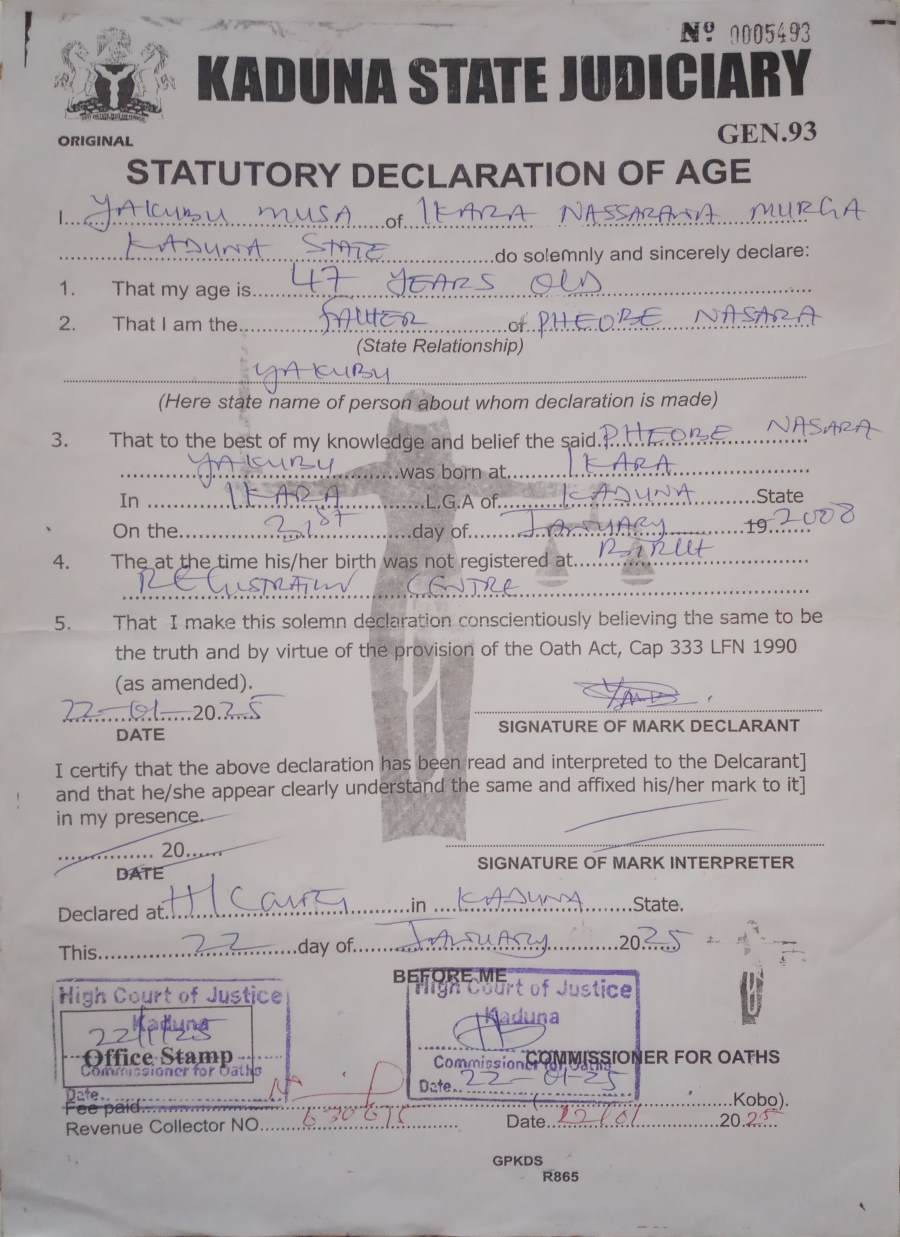 Nº 0005493
KADUNA STATE JUDICIARY
ORIGINAL
GEN.93
STATUTORY DECLARATION OF AGE
I...YAKUBU MUSA...of IKARA NASSARAWA MURGA
KADUNA STATE...do solemnly and sincerely declare:
1. That my age is...47 YEARS OLD
2. That I am the...FATHER...of PHEOBE NASARA
(State Relationship)
YAKUBU
(Here state name of person about whom declaration is made)
3. That to the best of my knowledge and belief the said PHEOBE NASARA
YAKUBU...was born at...IKARA
In...IKARA...L.G.A of...KADUNA...State
On the...31st...day of...JANUARY...19...2008
4. The at the time his/her birth was not registered at...BIRTH
REGISTRATION CENTRE
5. That I make this solemn declaration conscientiously believing the same to be
the truth and by virtue of the provision of the Oath Act, Cap 333 LFN 1990
(as amended).
22-01-2025
DATE
SIGNATURE OF MARK DECLARANT
I certify that the above declaration has been read and interpreted to the Delcarant]
and that he/she appear clearly understand the same and affixed his/her mark to it]
in my presence.
...20...
DATE
SIGNATURE OF MARK INTERPRETER
Declared at...H/Court...in...KADUNA...State.
This...22...day of...JANUARY...2025
BEFORE ME
High Court of Justice
Kaduna
22/1/25
Office Stamp
Commissioner for Oaths
Date...
High Court of Justice
Kaduna
Commissioner for Oaths
COMMISSIONER FOR OATHS
Date...22-01-25
Fee paid...(...Kobo).
Revenue Collector NO...Date...22/01...2025
GPKDS
R865